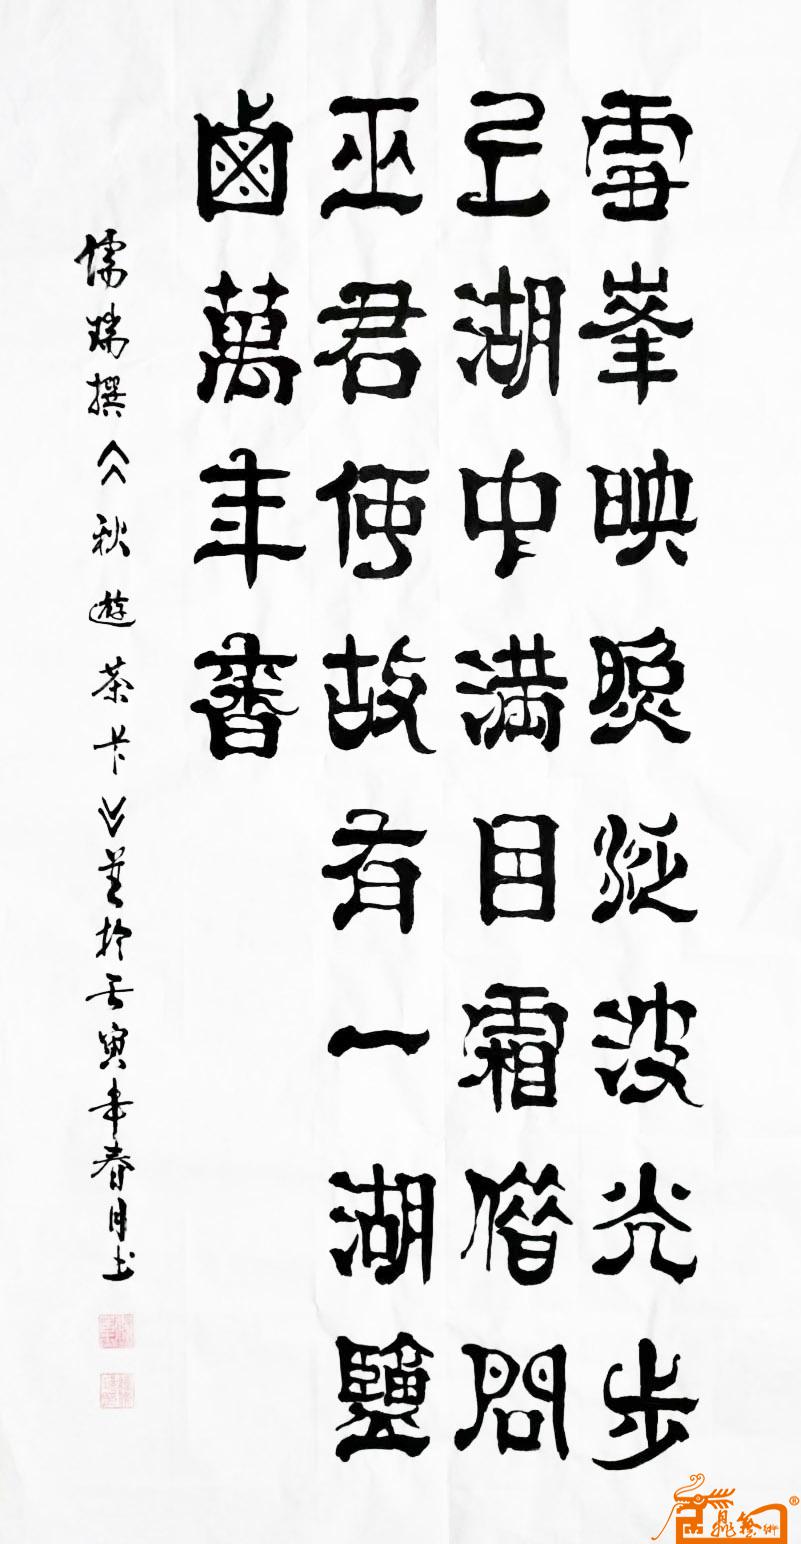 雪峯映照泛波光步
湖中滿目霜借問
巫君使故有一湖鹽
鹵萬年香
儒瑞撰《秋遊茶卡》並於壬寅年春月书